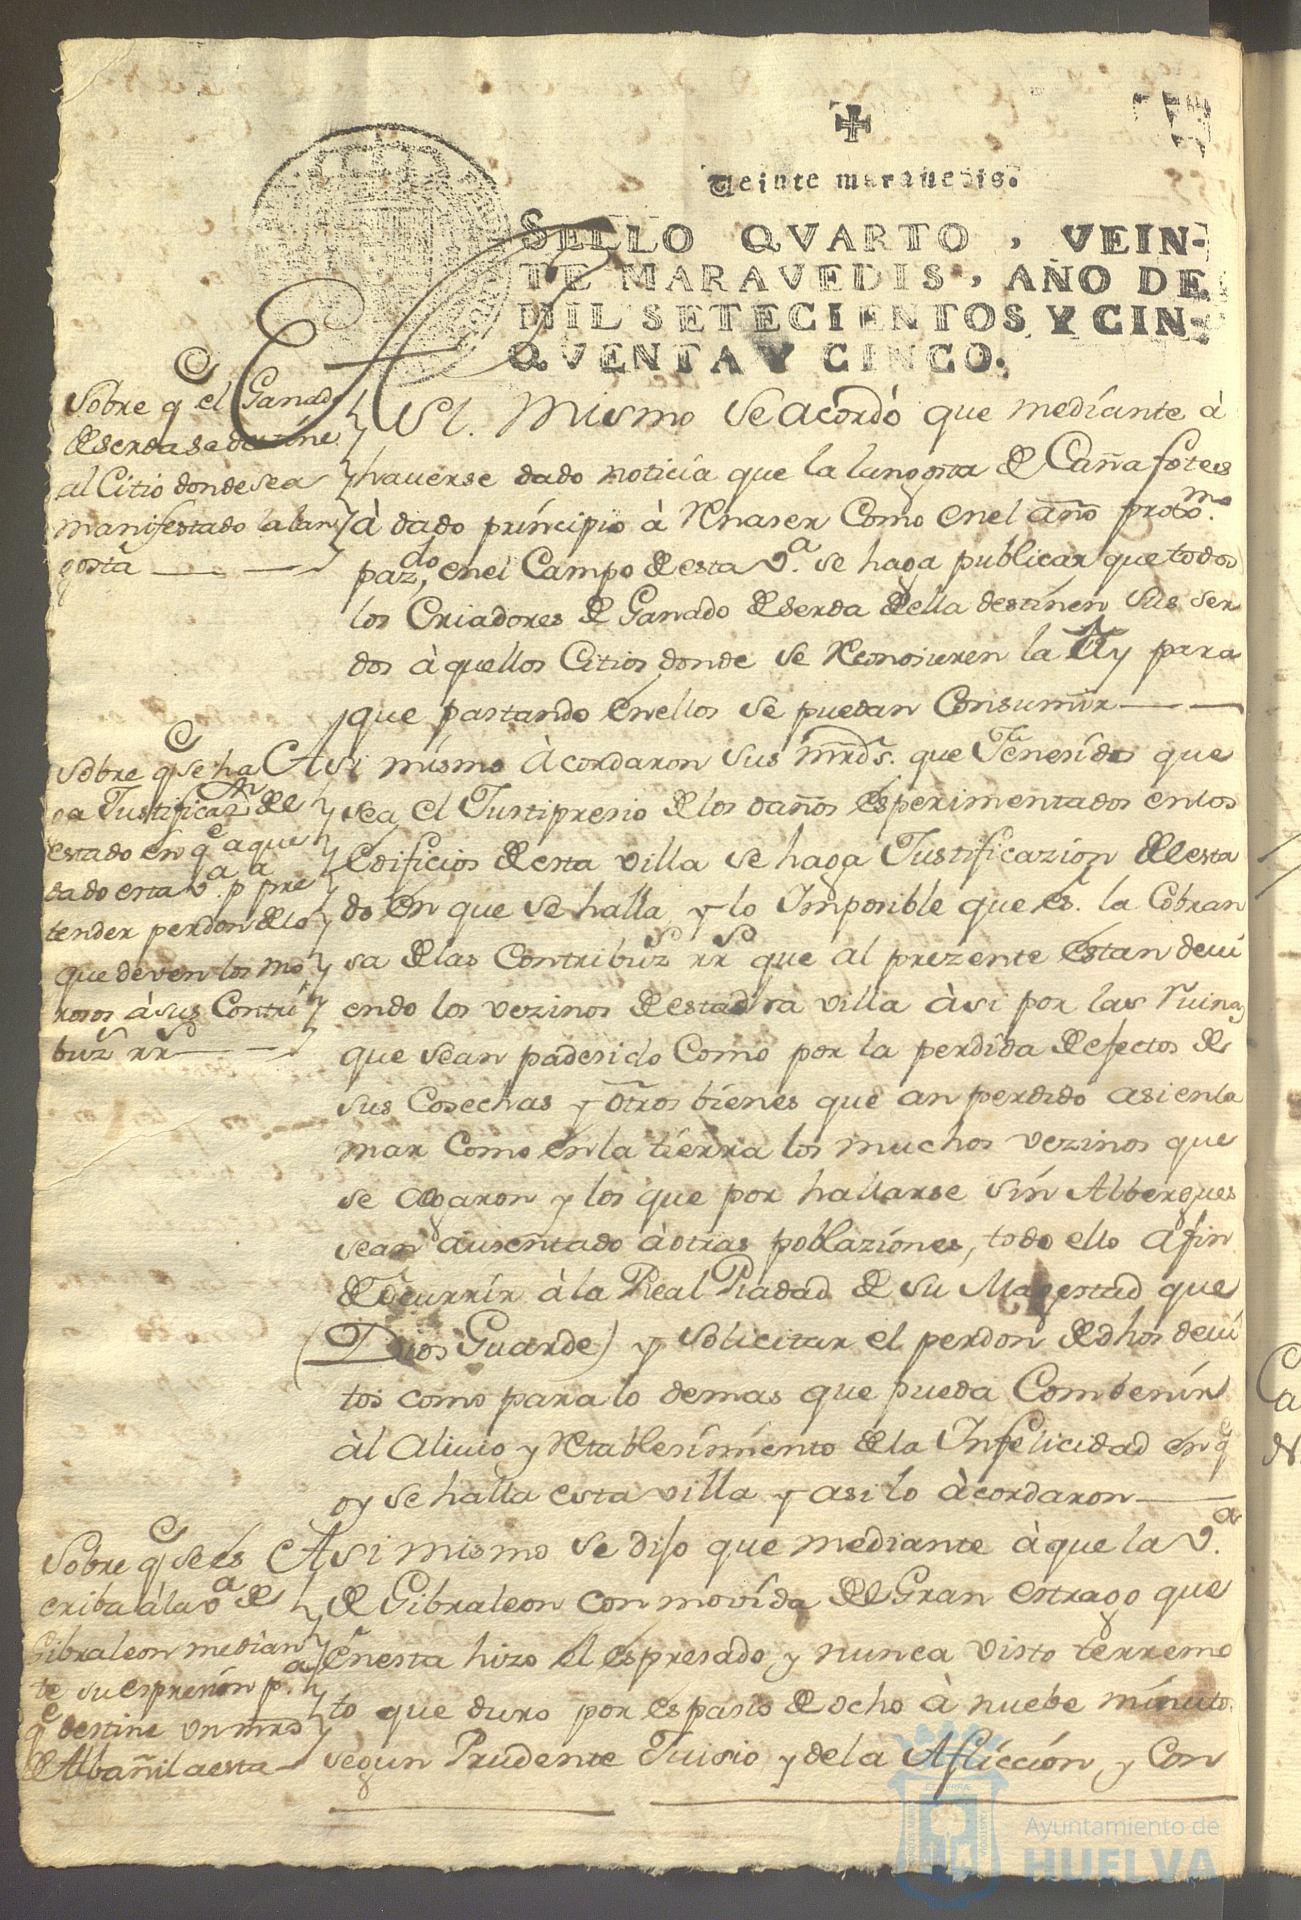 Veinte maravedis.
SELLO QVARTO, VEIN-
TE MARAVEDIS, AÑO DE
MIL SETECIENTOS Y CIN-
QVENTA Y CINCO.
Sobre q el Ganado
de serda se destine
al Citio donde sea
manifestado la lan
gosta
Asi. Mismo se acordó que mediante à
hauerse dado noticia que la langosta de Cañafotes
à dado principio à Renaser Como en el año proxmo.
pazdo, en el Campo de esta va. se haga publicar que todos
los Criadores de Ganado de serda de ella destinen sus ser
dos à quellos Citios donde se Reconosieren la y para
que pastando en ellos se puedan Consumir
Sobre q se ha
ga Justificazn del
estado en qe a que
dado esta va pa pre
tender perdon de lo
que deven los mo
rosos à sus Contri
buzs rrs
Asi mismo Acordaron sus mrds. que Fenesido que
sea el Justipresio de los daños esperimentados en los
edificios de esta villa se haga Justificazion del esta
do en que se halla y lo Imposible que es. la Cobran
sa de las Contribuzs rrs que al prezente estan devi
endo los vezinos de esta dra villa àsi por las Ruinas
que sean padesido Como por la perdida de efectos de
sus Cosechas y otros bienes que an perdido asi en la
mar como en la tierra los muchos vezinos que
se aogaron y los que por hallarse sin Albergues
sean ausentado à otras poblaziones, todo ello afin
de ocurrir à la Real Piadad de su Magestad que
(Dios Guarde) y solicitar el perdon de dhos devi
tos como para lo demas que pueda Combenir
àl alivio y Restablesimiento de la Infelicidad en q
oy se halla esta villa y asi lo àcordaron
Sobre q se es
criba à la va de
Gibraleon median
te su espresion pa
qe destine un mro
de Albañil a esta
Asi mismo se dijo que mediante à que la va.
de Gibraleon conmovida del Gran estrago que
en esta hizo el espresado y nunca visto terremo
to que duro por espasio de ocho à nuebe minutos
segun Prudente Juisio y de la Afliccion, y Con
Ayuntamiento de
HUELVA